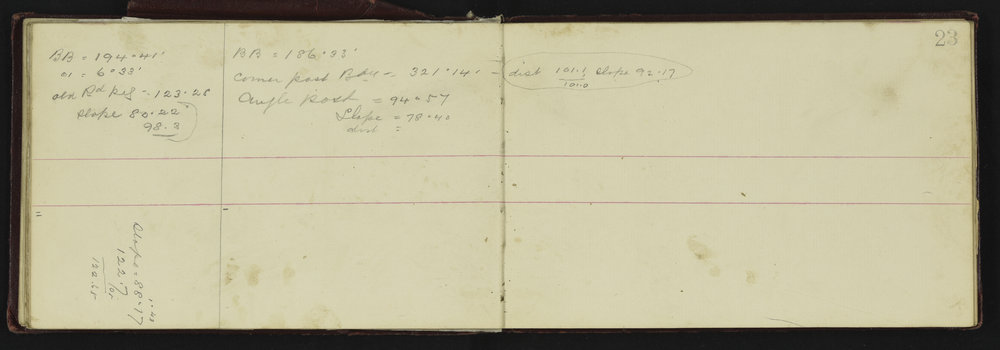 23
BB = 194°41'
" = 6°33'
old Rd peg = 123.28
slope 80.22'
98.3
BB = 186°33'
Corner post Bdy = 321°14' = dist 101.1 slope 92.17
101.0
Angle post = 94.57
Slope = 78.40
dist =
Slope = 88.17
122.7
122.65